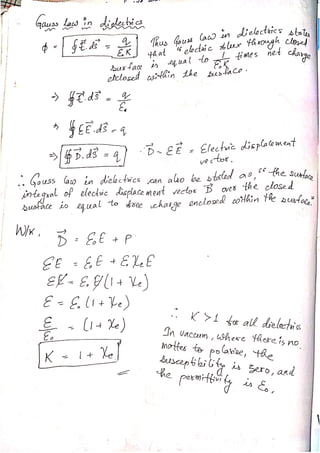 Gauss law in dielectrics
ϕ = ∮∮ E⃗.ds⃗ = q/EK
Thus Gauss law in dielectrics states
that "electric flux through closed
surface is equal to 1/E.K times net charge
enclosed within the surface.
⇒ ∮∮ E⃗.ds⃗ = q/ε.
⇒ ∮∮ εE⃗.ds⃗ = q
⇒ ∮∮ D⃗.ds⃗ = q
∵ D⃗ = εE⃗ = Electric displacement
vector.
∴ Gauss law in dielectrics can also be stated as, "the surface
integral of electric displacement vector D⃗ over the closed
surface is equal to free charge enclosed within the surface."
W/K, D⃗ = ε₀E + P
εE = ε₀E + ε₀χeE
εE = ε₀E(1 + χe)
ε = ε₀(1 + χe)
ε/ε₀ = (1 + χe)
K = 1 + χe
∴ K > 1 for all dielectrics
In vaccum, where there is no
matter to polarise, the
susceptibility is zero, and
the permittivity is ε₀.